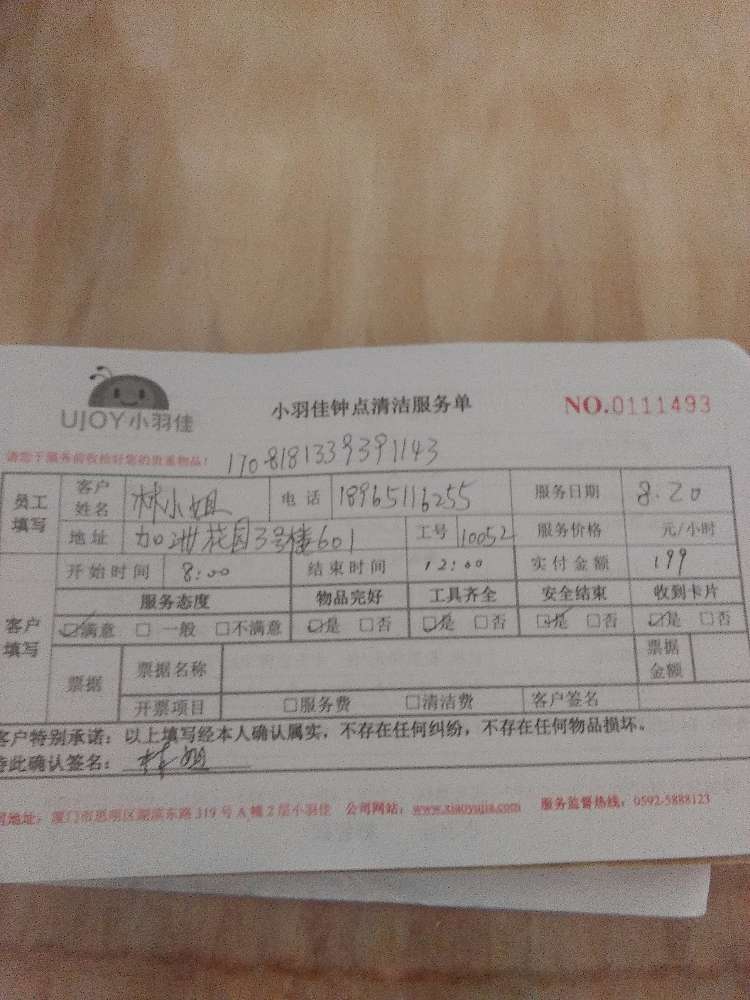 UJOY小羽佳
小羽佳钟点清洁服务单
NO.0111493
请您于服务前收拾好您的贵重物品!
170818133939 1143
员工填写 客户姓名 林小姐 电话 18965116255 服务日期 8.20
地址 加洲花园3号楼601 工号 10052 服务价格 元/小时
客户填写 开始时间 8:00 结束时间 12:00 实付金额 199
服务态度 物品完好 工具齐全 安全结束 收到卡片
☑满意 □一般 □不满意 ☑是 □否 ☑是 □否 ☑是 □否 ☑是 □否
票据 票据名称 票据金额
开票项目 □服务费 □清洁费 客户签名
客户特别承诺：以上填写经本人确认属实，不存在任何纠纷，不存在任何物品损坏。
特此确认签名：林姐
司地址：厦门市思明区湖滨东路319号A幢2层小羽佳 公司网站：www.xiaoyujia.com 服务监督热线：0592-5888123